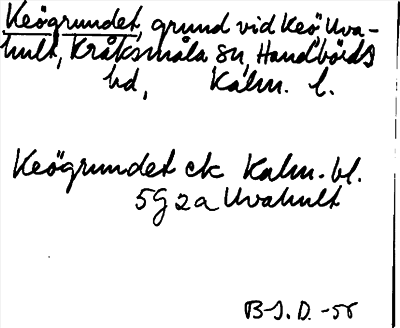 Keögrundet, grund vid Keö Uva-
hult, Kråksmåla sn, Handbörds
hd, Kalm. l.
Keögrundet ek Kalm. bl.
5g2a Uvahult
B-S.D. -58